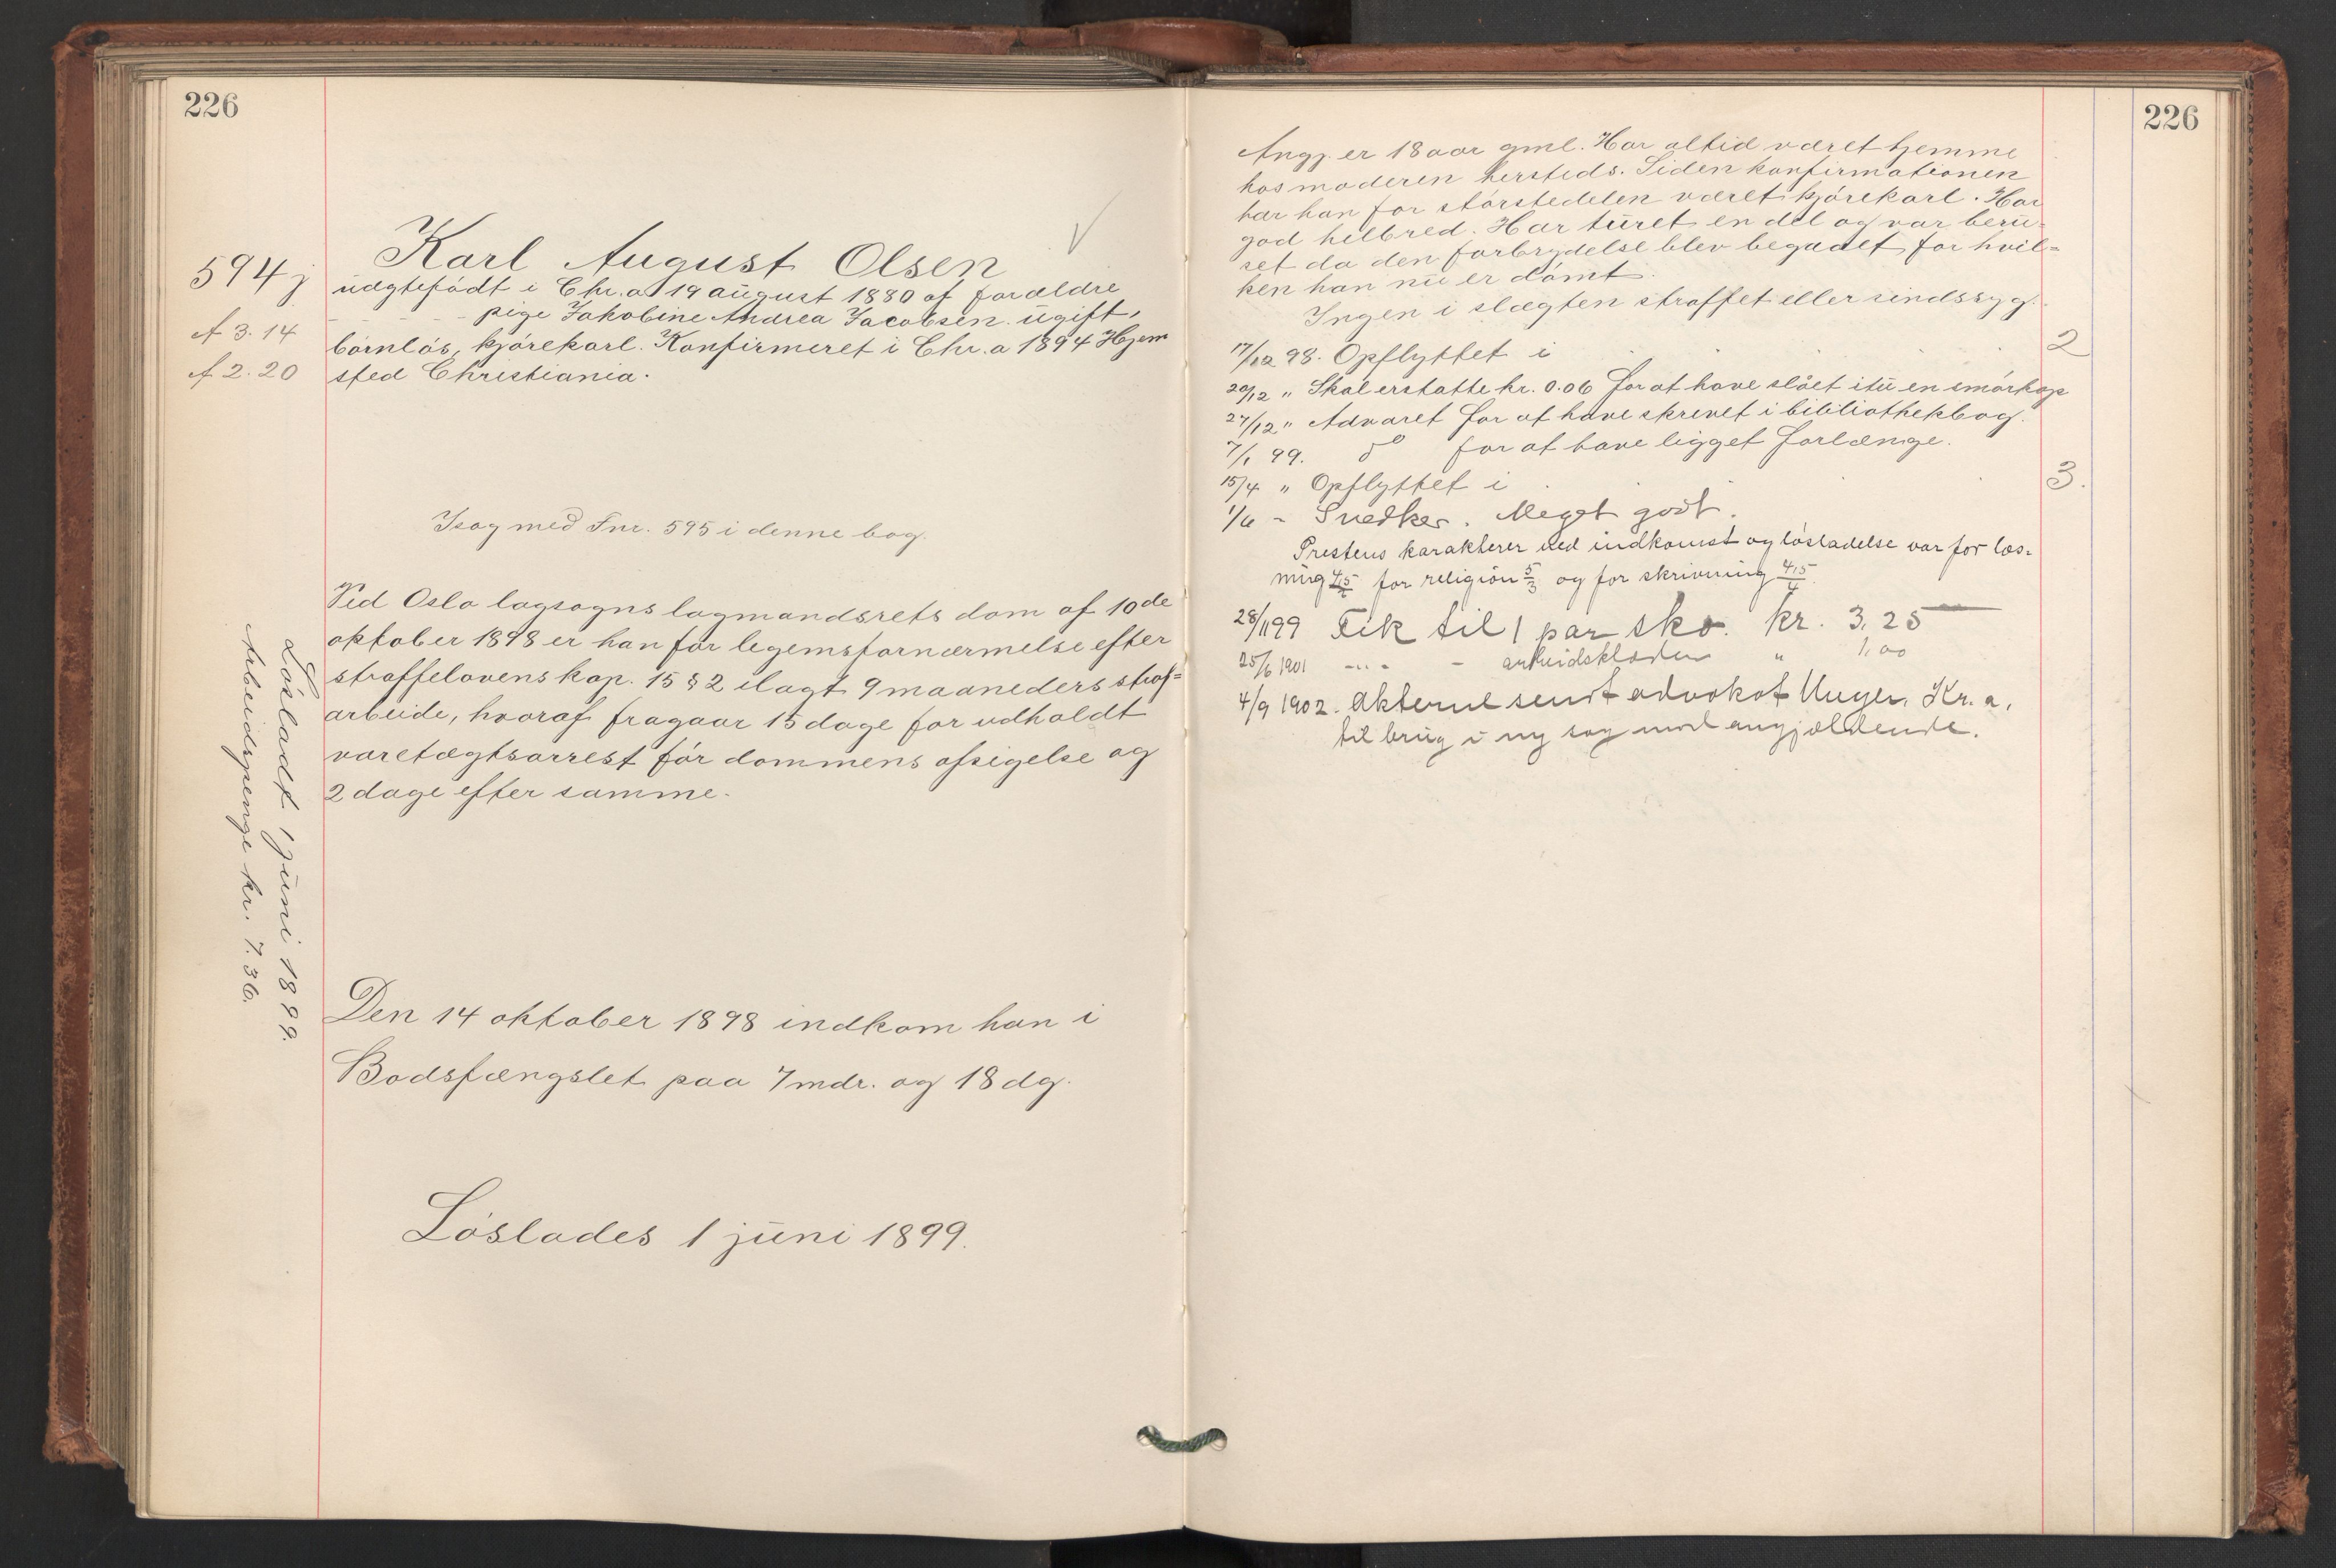 226
594 j
A 3. 14
A 2. 20
Karl August Olsen
uægtefödt i Chr.a 19 august 1880 af forældre
pige Jakobine Andrea Jacobsen. ugift,
börnlös, kjörekarl. Konfirmeret i Chr.a 1894 Hjem
sted Christiania.
I sag med Fnr. 595 i denne bog.
Ved Oslo lagsogns lagmandsrets dom af 10de
oktober 1898 er han for legemsfornærmelse efter
straffelovens kap. 15 § 2 ilagt 9 maaneders straf=
arbeide, hvoraf fragaar 15 dage for udholdt
varetægtsarrest för dommens afsigelse og
2 dage efter samme.
Lösladt 1 juni 1899.
Arbeidspenge kr. 7.36.
Den 14 oktober 1898 indkom han i
Bodsfængslet paa 7 mdr. og 18 dg.
Löslades 1 juni 1899.
226
Angj. er 18 aar gml. Har altid været hjemme
hos moderen hersteds. Siden konfirmationen
har han for störstedelen været kjörekarl. Har
god helbred. Har turet en del og var beru-
set da den forbrydelse blev begaaet for hvil=
ken han nu er dömt.
Ingen i slægten straffet eller sindssyg.
17/12 98. Opflyttet i 2
20/12 " Skal erstatte kr. 0.06 for at have slået itu en smörkop
27/12 " Advaret for at have skrevet i bibliothekbog.
7/1 99. do for at have ligget forlænge.
15/4 " Opflyttet i 3.
1/6 - Snedker. Meget godt.
Prestens karakterer ved indkomst og lösladelse var for læs-
ning for religion 5/3 og for skrivning 4,5/4.
28/11 99 Fik til 1 par sko. kr. 3,25
25/6 1901 - " - - arbeidsklæder " 1,00
4/9 1902. Akterne sendt advokat Unger, Kr. a,
til brug i ny sag mod angjældende.